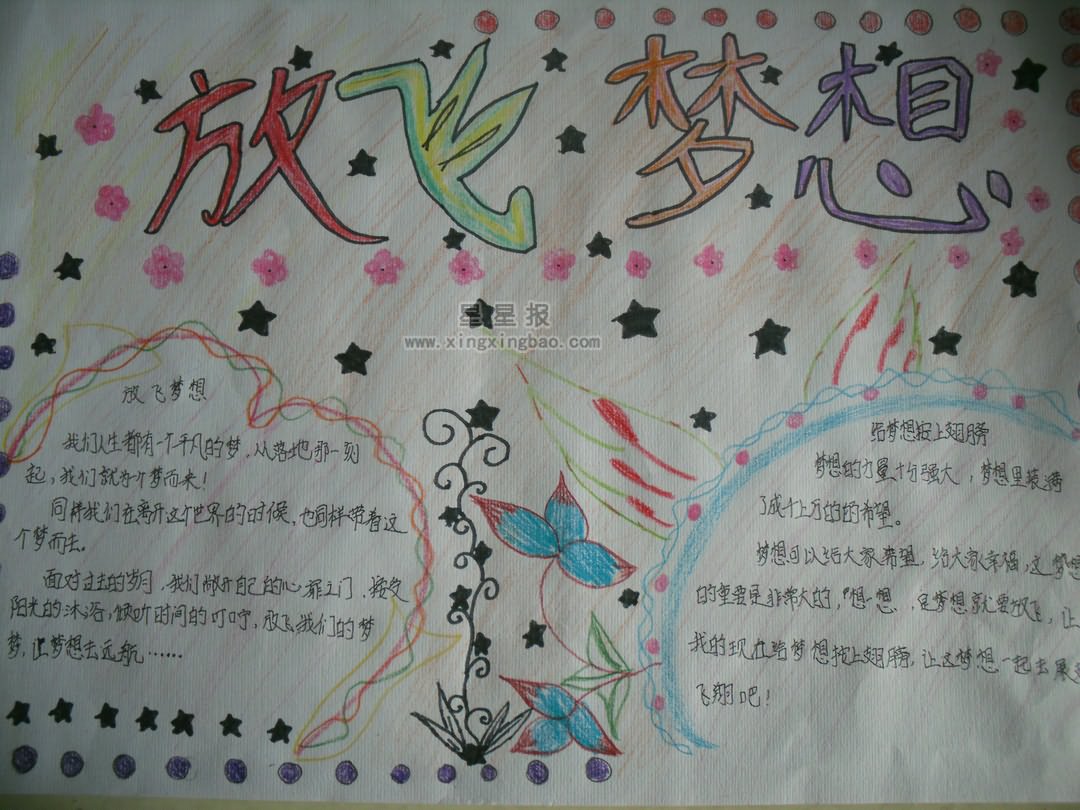 放飞梦想
星星报
www.xingxingbao.com
放飞梦想
我们人生都有一个平凡的梦，从落地那一刻
起，我们就为个梦而来！
同样我们在离开这个世界的的时候，也同样带着这
个梦而去。
面对过去的岁月，我们敞开自己的心扉之门，接受
阳光的沐浴，倾听时间的叮咛，放飞我们的梦
梦，让梦想去远航……
给梦想按上翅膀
梦想的力量十分强大，梦想里装满
了成千上万的的希望。
梦想可以给大家希望，给大家幸福，这梦想
的重要是非常大的，"想一想，是梦想就要放飞，让
我的现在给梦想按上翅膀，让这梦想一起去展
飞翔吧！